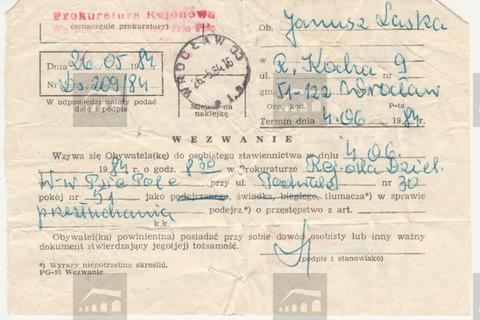 Prokuratura Rejonowa
(oznaczenie prokuratury)
Ob. Janusz Łaska
Dnia 26.05 1984
Nr Ds. 209/84
W odpowiedzi należy podać
datę i podpis
WROCŁAW 53
Miejsce na
naklejkę
R. Kocha 9
ul.
51-122 Wrocław
Ozn. kod. P-ta
Termin dnia 4.06 1984 r.
WEZWANIE
Wzywa się Obywatela(kę) do osobistego stawiennictwa w dniu 4.06.
1984 o godz. 8 30 w prokuraturze Rej. dla Dziel.
W-w Psie Pole przy ul. Podwale Nr 30
pokój nr 51 jako podejrzanego, świadka, biegłego, tłumacza*) w sprawie
przesłuchania podejrz.*) o przestępstwo z art.
k.k.
Obywatel(ka) powinien(na) posiadać przy sobie dowód osobisty lub inny ważny
dokument stwierdzający jego(jej) tożsamość.
*) Wyrazy niepotrzebne skreślić.
PG-93 Wezwanie
(podpis i stanowisko)